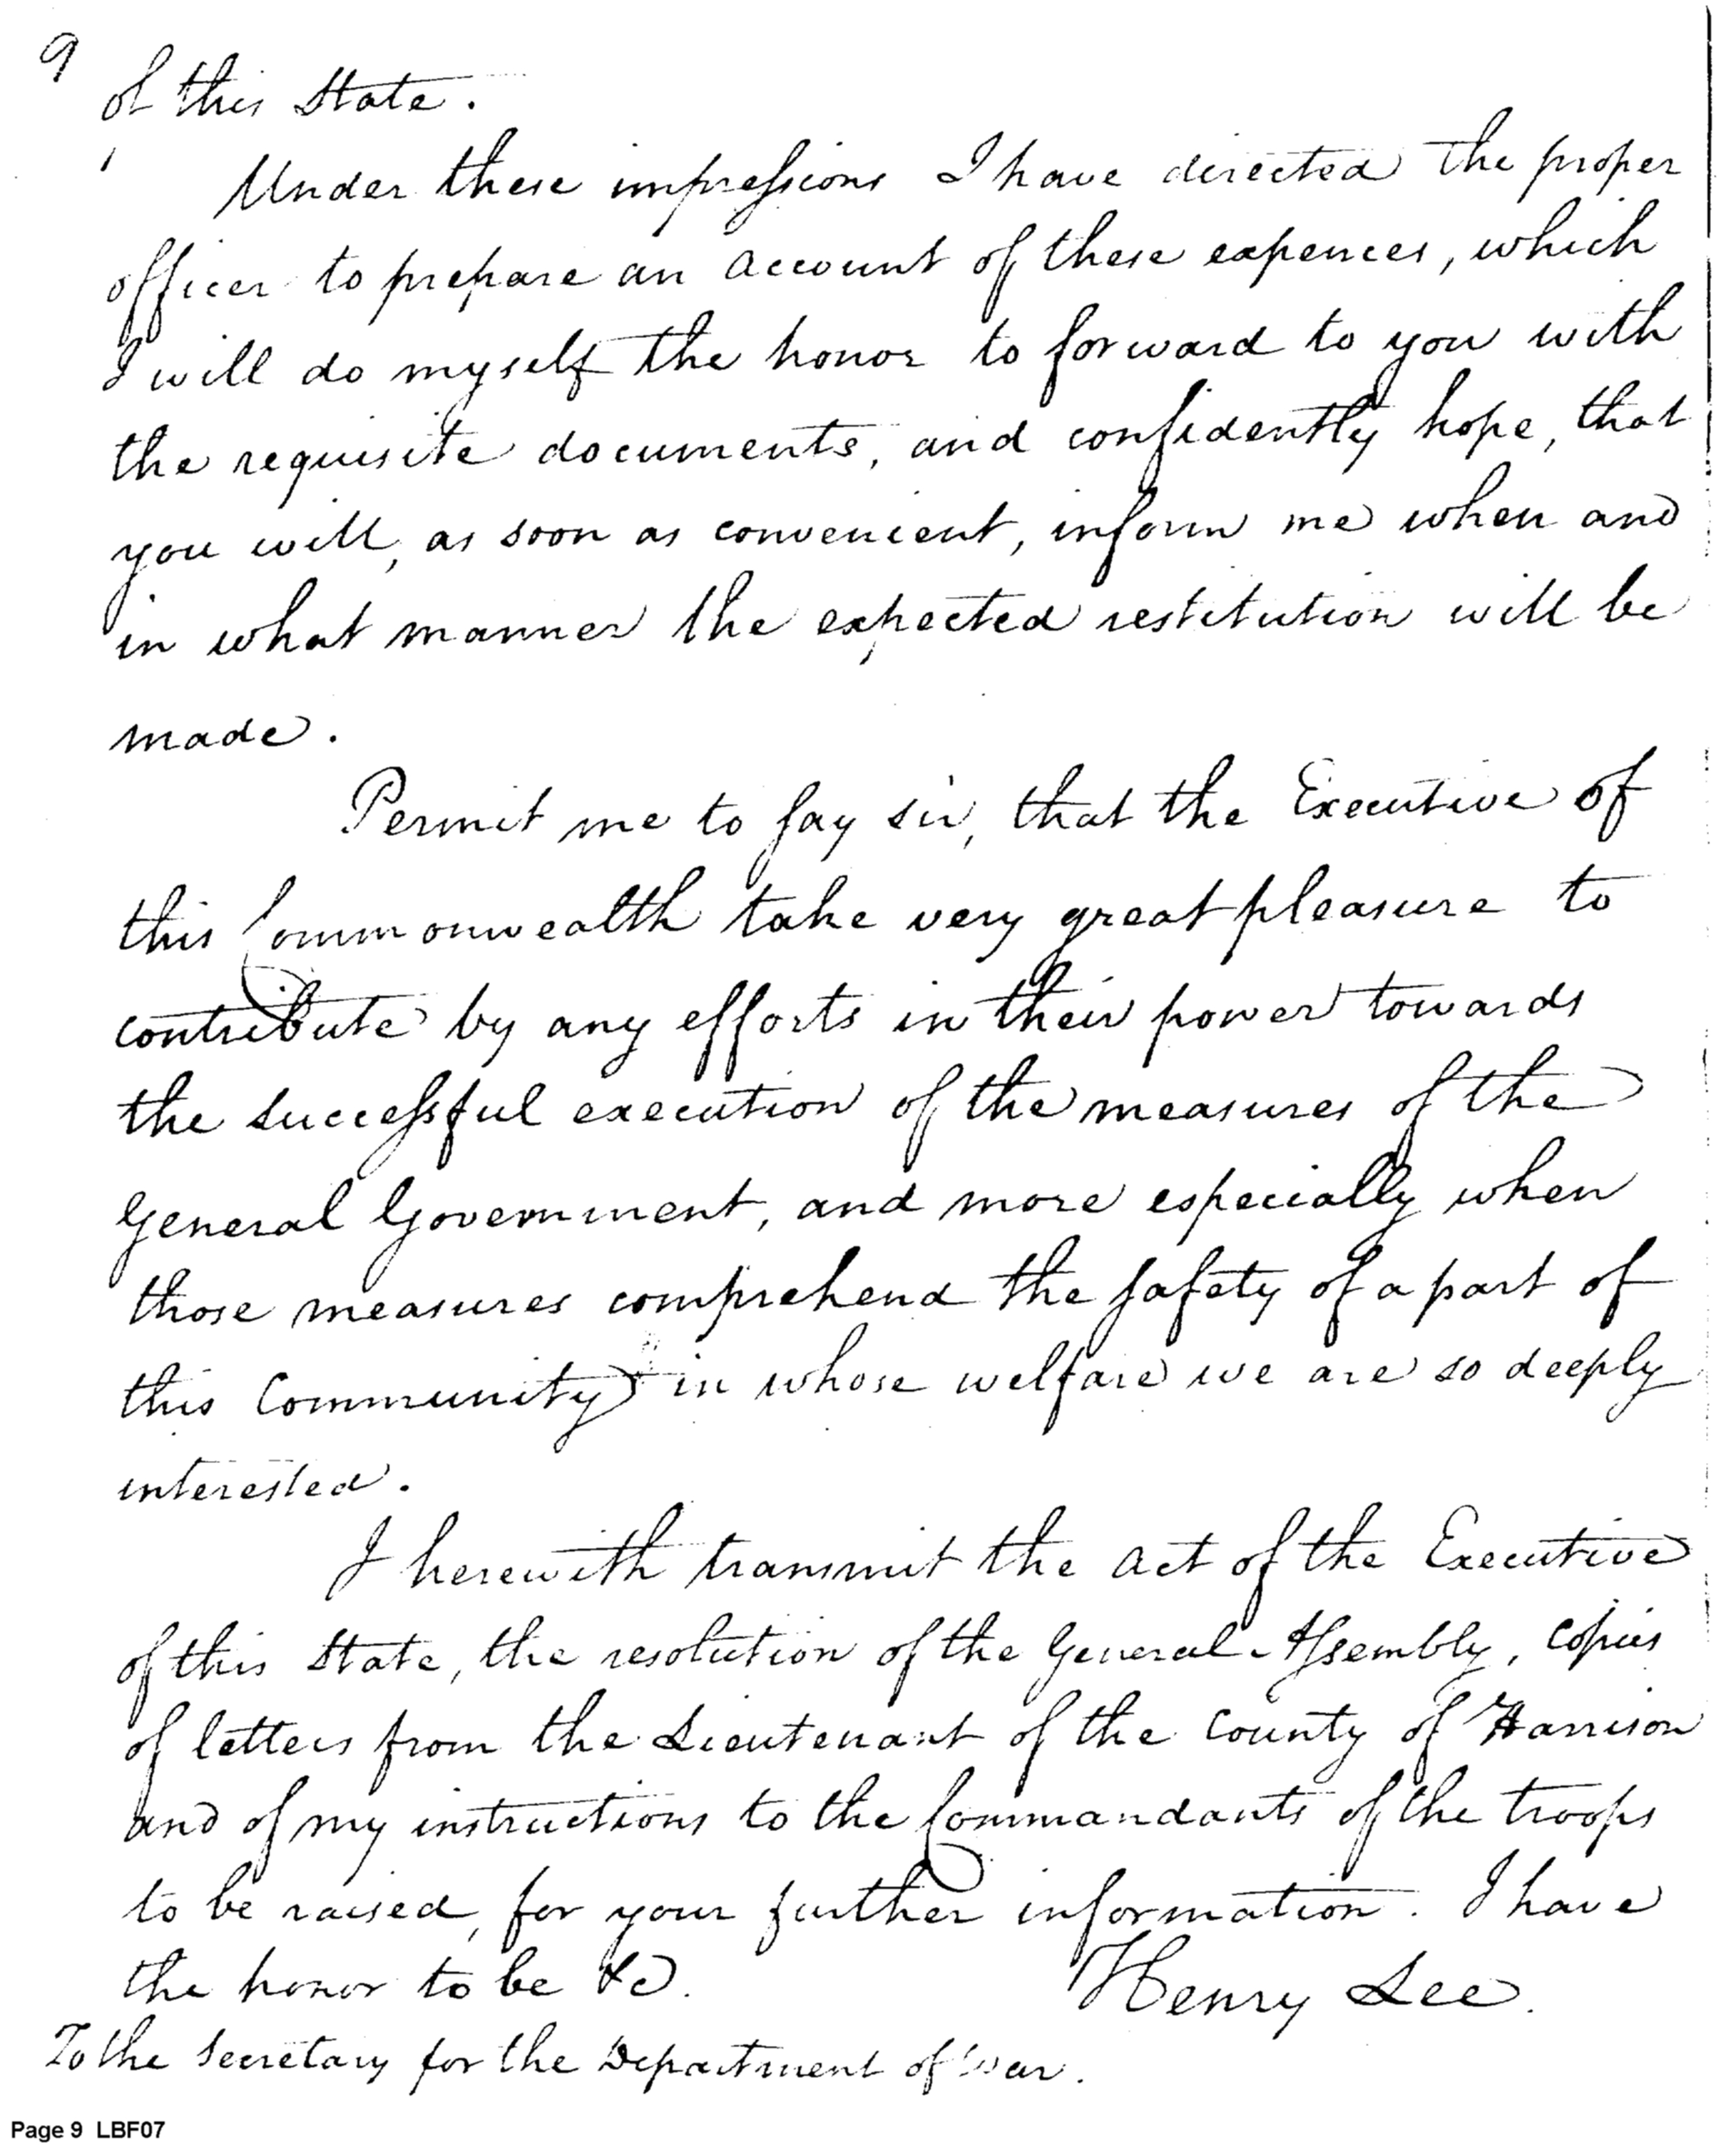 9
of this State.
Under these impressions I have directed the proper
officer to prepare an account of these expences, which
I will do myself the honor to forward to you with
the requisite documents, and confidently hope, that
you will, as soon as convenient, inform me when and
in what manner the expected restitution will be
made.
Permit me to say sir, that the Executive of
this Commonwealth take very great pleasure to
contribute by any efforts in their power towards
the successful execution of the measures of the
General Government, and more especially when
those measures comprehend the safety of a part of
this Community in whose welfare we are so deeply
interested.
I herewith transmit the act of the Executive
of this State, the resolution of the General Assembly, copies
of letters from the Lieutenant of the county of Harrison
and of my instructions to the Commandants of the troops
to be raised, for your further information. I have
the honor to be &c.
Henry Lee.
To the Secretary for the Department of War.
Page 9 LBF07